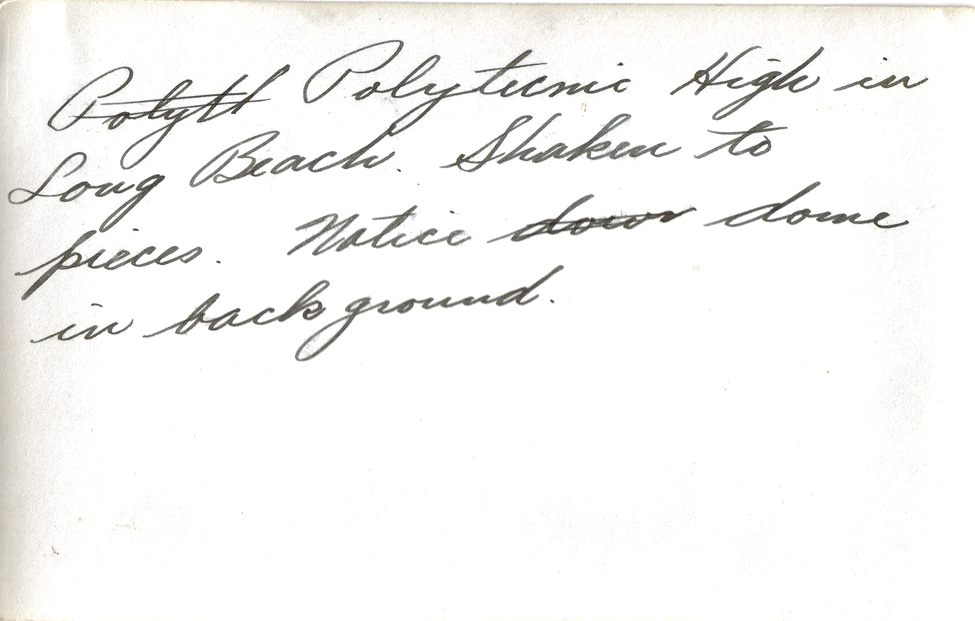 Polyth Polytecnic High in
Long Beach. Shaken to
pieces. Notice down dome
in background.